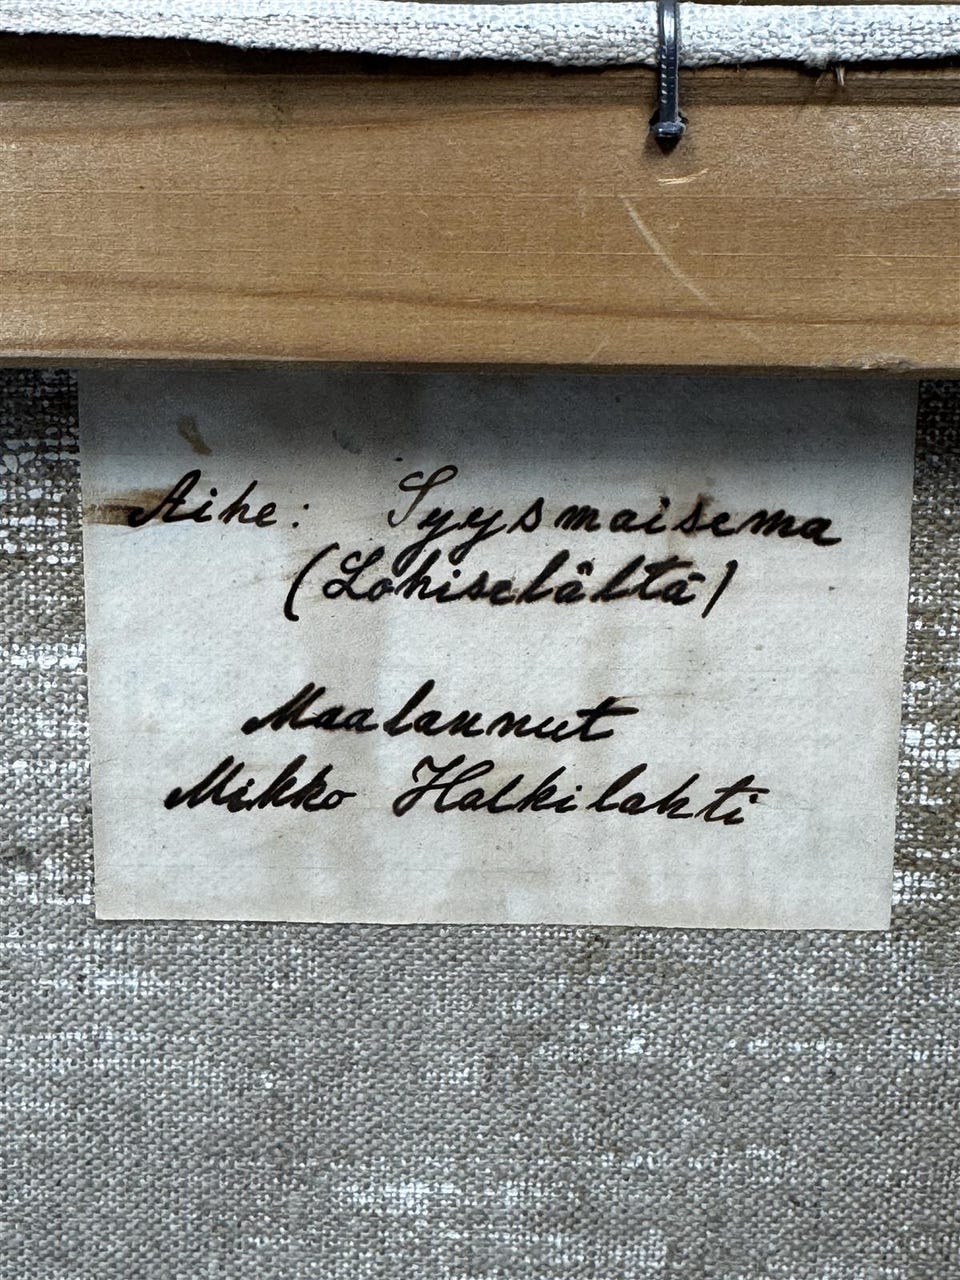 Aihe: Syysmaisema
(Lohiselältä)
Maalannut
Mikko Halkilahti